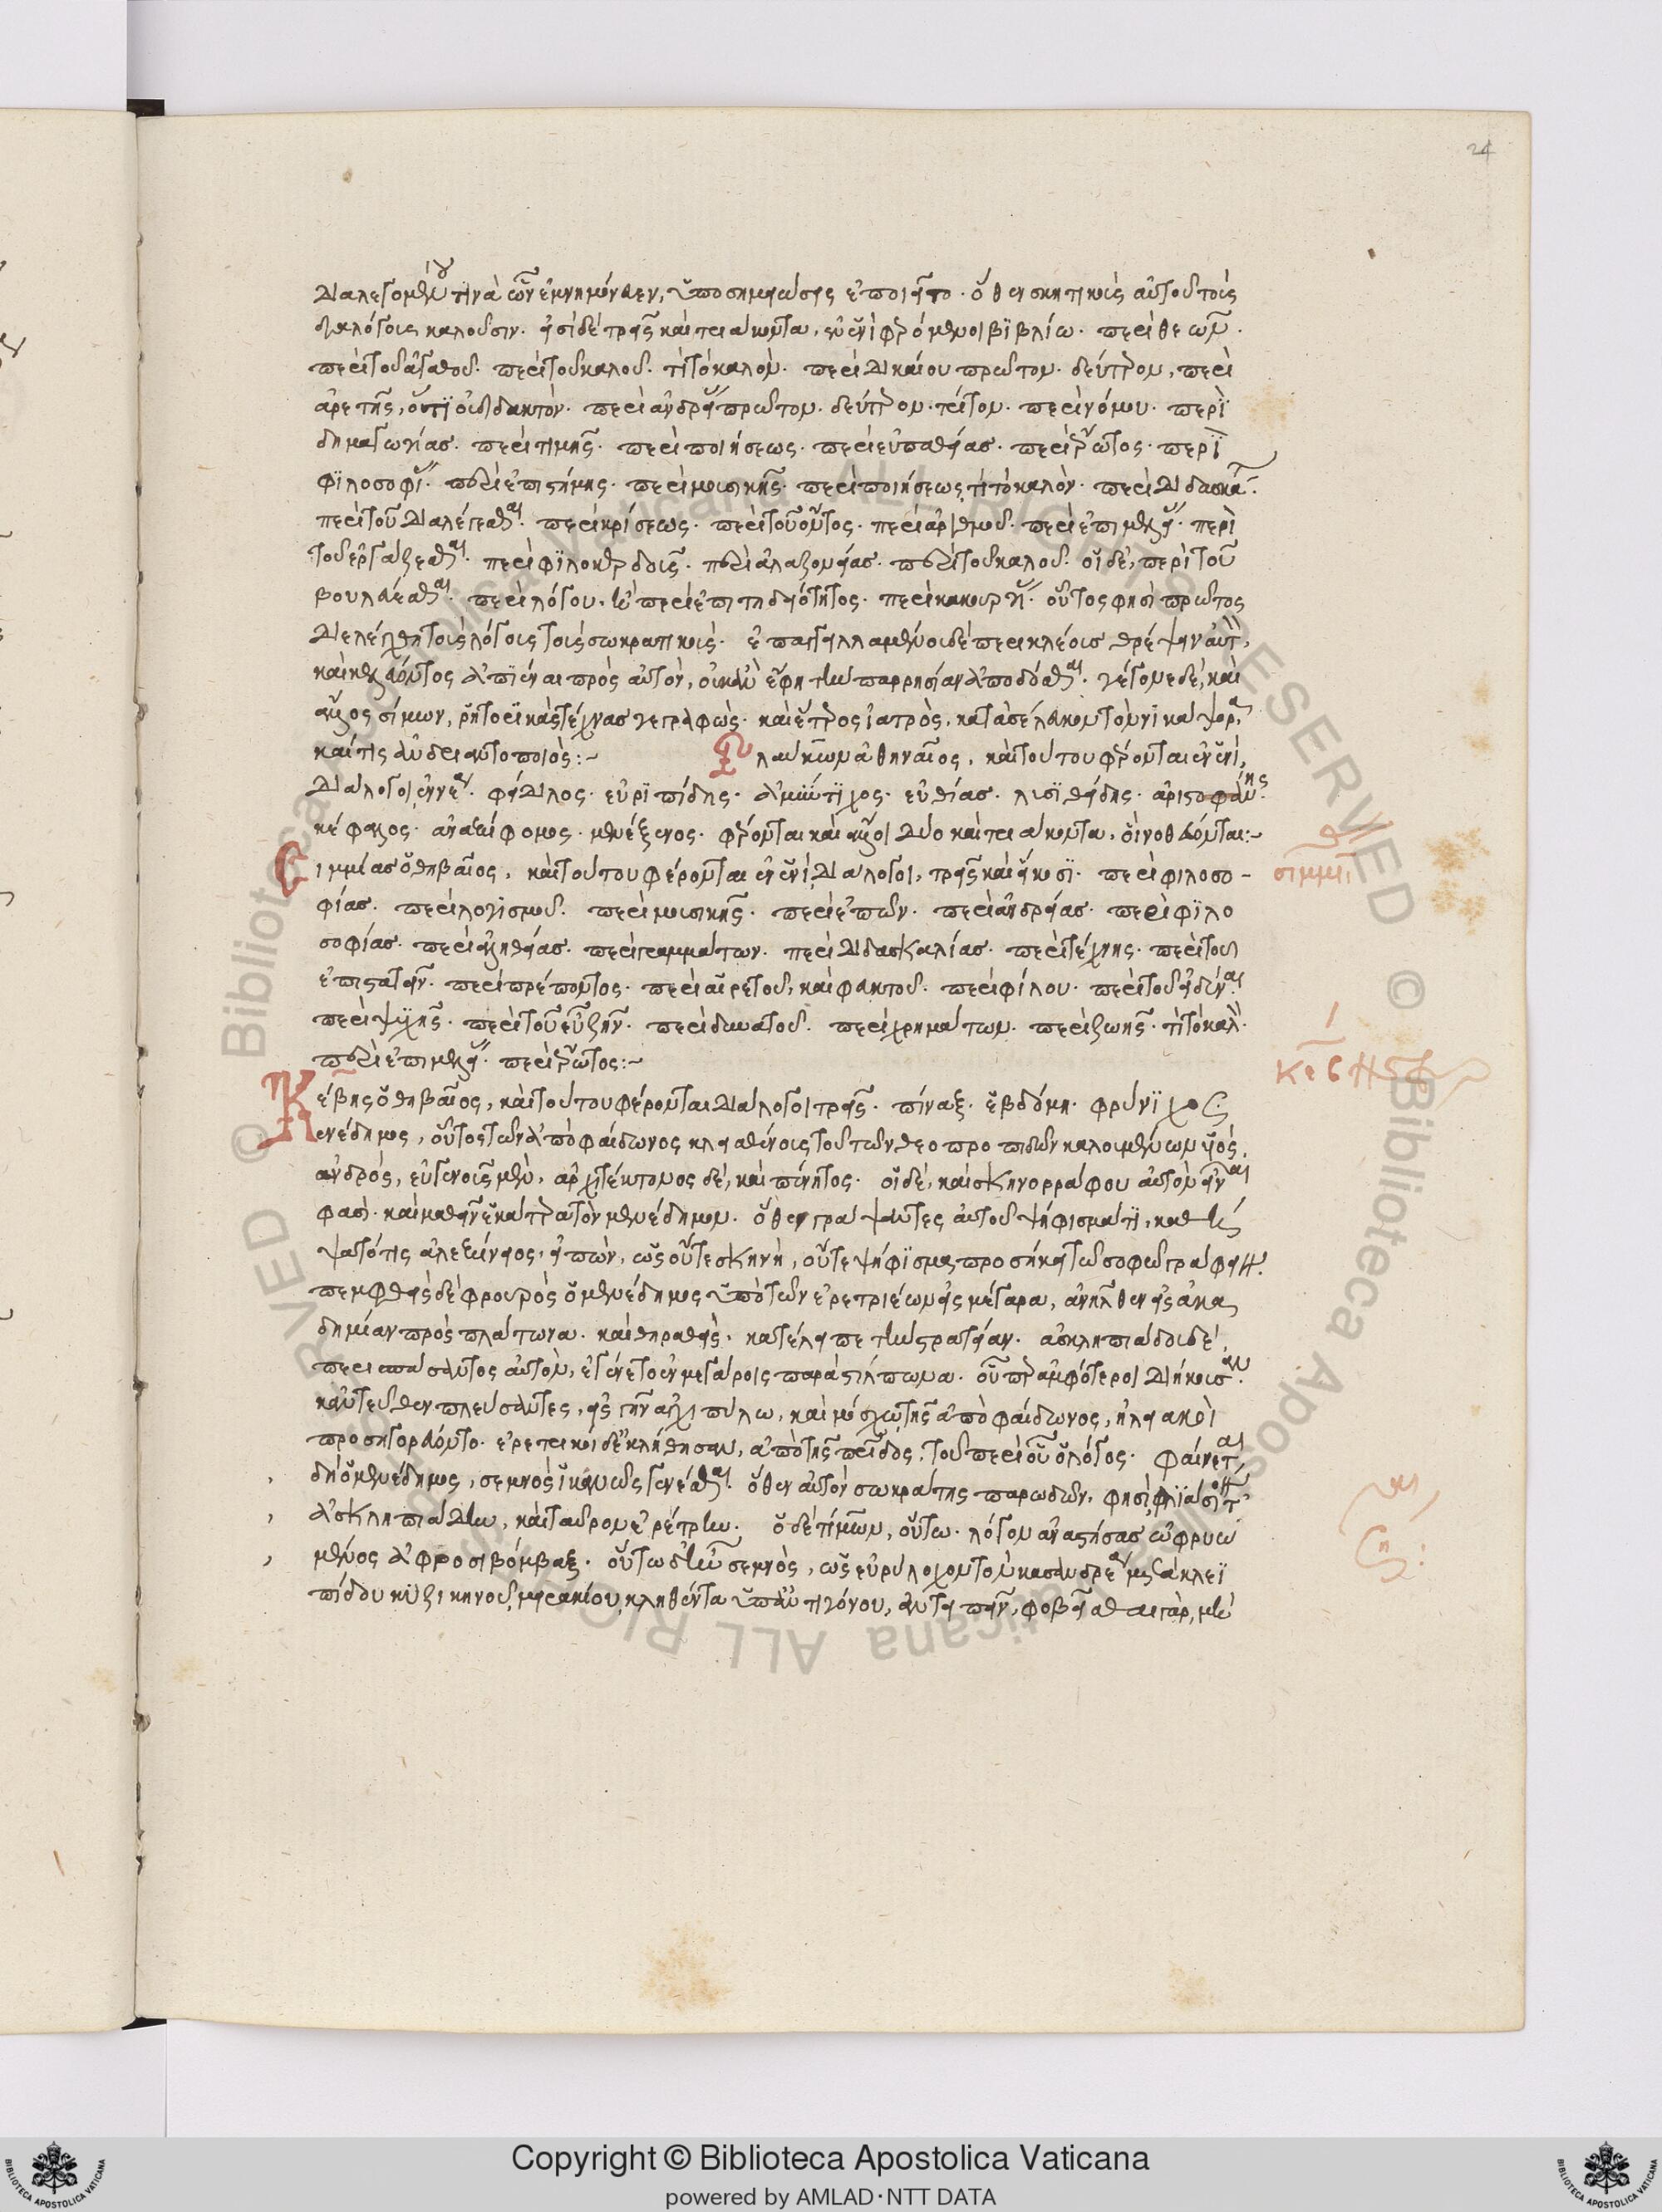 24
διαλεγομένου τινὰ ὧν ἐμνημόνευεν, ὑποσημειώσεις ἐποιεῖτο· ὅθεν σκητικοὺς αὐτοῦ τοὺς
διαλόγους καλοῦσιν. εἰσὶ δὲ τρεῖς καὶ τριάκοντα, ἐν ἑνὶ φερόμενοι βιβλίω· περὶ θεῶν·
περὶ τοῦ ἀγαθοῦ· περὶ τοῦ καλοῦ· τί τὸ καλόν· περὶ δικαίου πρῶτον· δεύτερον, περὶ
ἀρετῆς, ὅτι οὐ διδακτόν· περὶ ἀνδρείας πρῶτον· δεύτερον· τρίτον· περὶ νόμου· περὶ
δημαγωγίας· περὶ τιμῆς· περὶ ποιήσεως· περὶ εὐπαθείας· περὶ ἔρωτος· περὶ
φιλοσοφίας· περὶ ἐπιστήμης· περὶ μουσικῆς· περὶ ποιήσεως, τί τὸ καλόν· περὶ διδασκα.
περὶ τοῦ διαλέγεσθαι· περὶ κρίσεως· περὶ τοῦ ὄντος· περὶ ἀριθμοῦ· περὶ ἐπιμελείας· περὶ
τοῦ ἐργάζεσθαι· περὶ φιλοκερδοῦς· περὶ ἀλαζονείας· περὶ τοῦ καλοῦ· οἱ δὲ, περὶ τοῦ
βουλεύεσθαι· περὶ λόγου, ἢ περὶ ἐπιτηδειότητος· περὶ κακουργίας· οὗτος φησὶ πρῶτος
διελέχθη τοὺς λόγους τοὺς σωκρατικούς· ἐπαγγειλλαμένου δὲ περικλέους θρέψειν αὐτ,
καὶ κελεύοντος ἀπιέναι πρὸς αὐτὸν, οὐκ ἂν ἔφη τὴν παρρησίαν ἀποδόσθαι· γέγονε δὲ, καὶ
ἄλλος σίμων, ῥητορικὰς τέχνας γεγραφώς· καὶ ἕτερος ἰατρὸς, κατὰ σέλευκον τὸν νικάνορ,
καί τις ἀνδριαντοποιός:~ Γλαύκων ἀθηναῖος, καὶ τούτου φέρονται ἐν ἑνὶ,
διάλογοι ἐννέα· φείδιλος· εὐριπίδης· ἀμύντιχος· εὐθίας· λυσιθείδης· ἀριστοφάνης
κέφαλος· ἀναξίφομος· μενέξενος· φέρονται καὶ ἄλλοι δύο καὶ τριάκοντα, οἳ νοθεύονται:~
Σιμμίας ὁ θηβαῖος, καὶ τούτου φέρονται ἐν ἑνὶ, διάλογοι, τρεῖς καὶ εἴκοσι· περὶ φιλοσο-
σιμμί
φίας· περὶ λογισμοῦ· περὶ μουσικῆς· περὶ ἐπῶν· περὶ ἀνδρείας· περὶ φιλο
σοφίας· περὶ ἀληθείας· περὶ γραμμάτων· περὶ διδασκαλίας· περὶ τέχνης· περὶ τοῦ
ἐπιστατεῖν· περὶ πρέποντος· περὶ αἱρετοῦ, καὶ φακτοῦ· περὶ φίλου· περὶ τοῦ εἰδέναι
περὶ ψυχῆς· περὶ τοῦ εὖ ζῆν· περὶ δυνατοῦ· περὶ χρημάτων· περὶ ζωῆς· τί τὸ καλὸ.
περὶ ἐπιμελείας· περὶ ἔρωτος:~
κέβης
Κέβης ὁ θηβαῖος, καὶ τούτου φέρονται διάλογοι τρεῖς· πίναξ· ἑβδόμη· φρύνιχος
Μενέδημος, οὗτος τῶν ἀπὸ φαίδωνος κλεισθένους τοῦ τῶν θεοπροπιδῶν καλουμένων υἱός,
ἀνδρὸς, εὐγενοῦς μὲν, ἀρχιτέκτονος δὲ, καὶ πένητος· οἱ δὲ, καὶ σκηνορράφου αὐτὸν εἶναι
φασί· καὶ μαθεῖν ἑκάτερα τὸν μενέδημον· ὅθεν γράψαντες αὐτοῦ ψήφισμά τι, καθή
ψατό τις ἀλεξίνειος, εἰπὼν, ὡς οὔτε σκηνὴ, οὔτε ψήφισμα προσήκει τῶ σοφῶ γράφειν.
πεμφθεὶς δὲ φρουρὸς ὁ μενέδημος ὑπὸ τῶν ἐρετριέων εἰς μέγαρα, ἀνῆλθεν εἰς ἀκα
δημίαν πρὸς πλάτωνα· καὶ θηραθεὶς, κατέλειπε τὴν στρατείαν· ἀσκληπιάδου δὲ,
περισπάσαντος αὐτὸν, ἐγένετο ἐν μεγάροις παρὰ στίλπωνα· οὗπερ ἀμφότεροι διήκουσαν
κἀντεῦθεν πλεύσαντες, εἰς ἦλιν ἀγχιπύλω, καὶ μόσχω τῆς ἀπὸ φαίδωνος, ἠλειακοὶ
προσηγορεύοντο· ἐρετρικοὶ δ' ἐκλήθησαν, ἀπὸ τῆς πατρίδος, τοῦ περὶ οὗ ὁ λόγος· φαίνεται
δὴ ὁ μενέδημος, σεμνὸς ἱκανῶς γενέσθαι· ὅθεν αὐτὸν σωκράτης παρωδῶν, φησὶ, φλιάσιόν τ'
ἀσκληπιάδην, καὶ ταῦρον ἐρέτρην· ὁ δὲ τίμων, οὕτω· λόγον ἀναστήσας ὠφρυω
μένος ἀφροσιβόμβαξ· οὕτω δ' ἦν σεμνὸς, ὡς εὐρύλοχον τὸν κασανδρέα μετὰ κλεϊ
πίδου κυζικηνοῦ μειρακίου, κληθέντα ὑπ' ἀντιγόνου, ἀντειπεῖν, φοβεῖσθαι γὰρ, μὴ